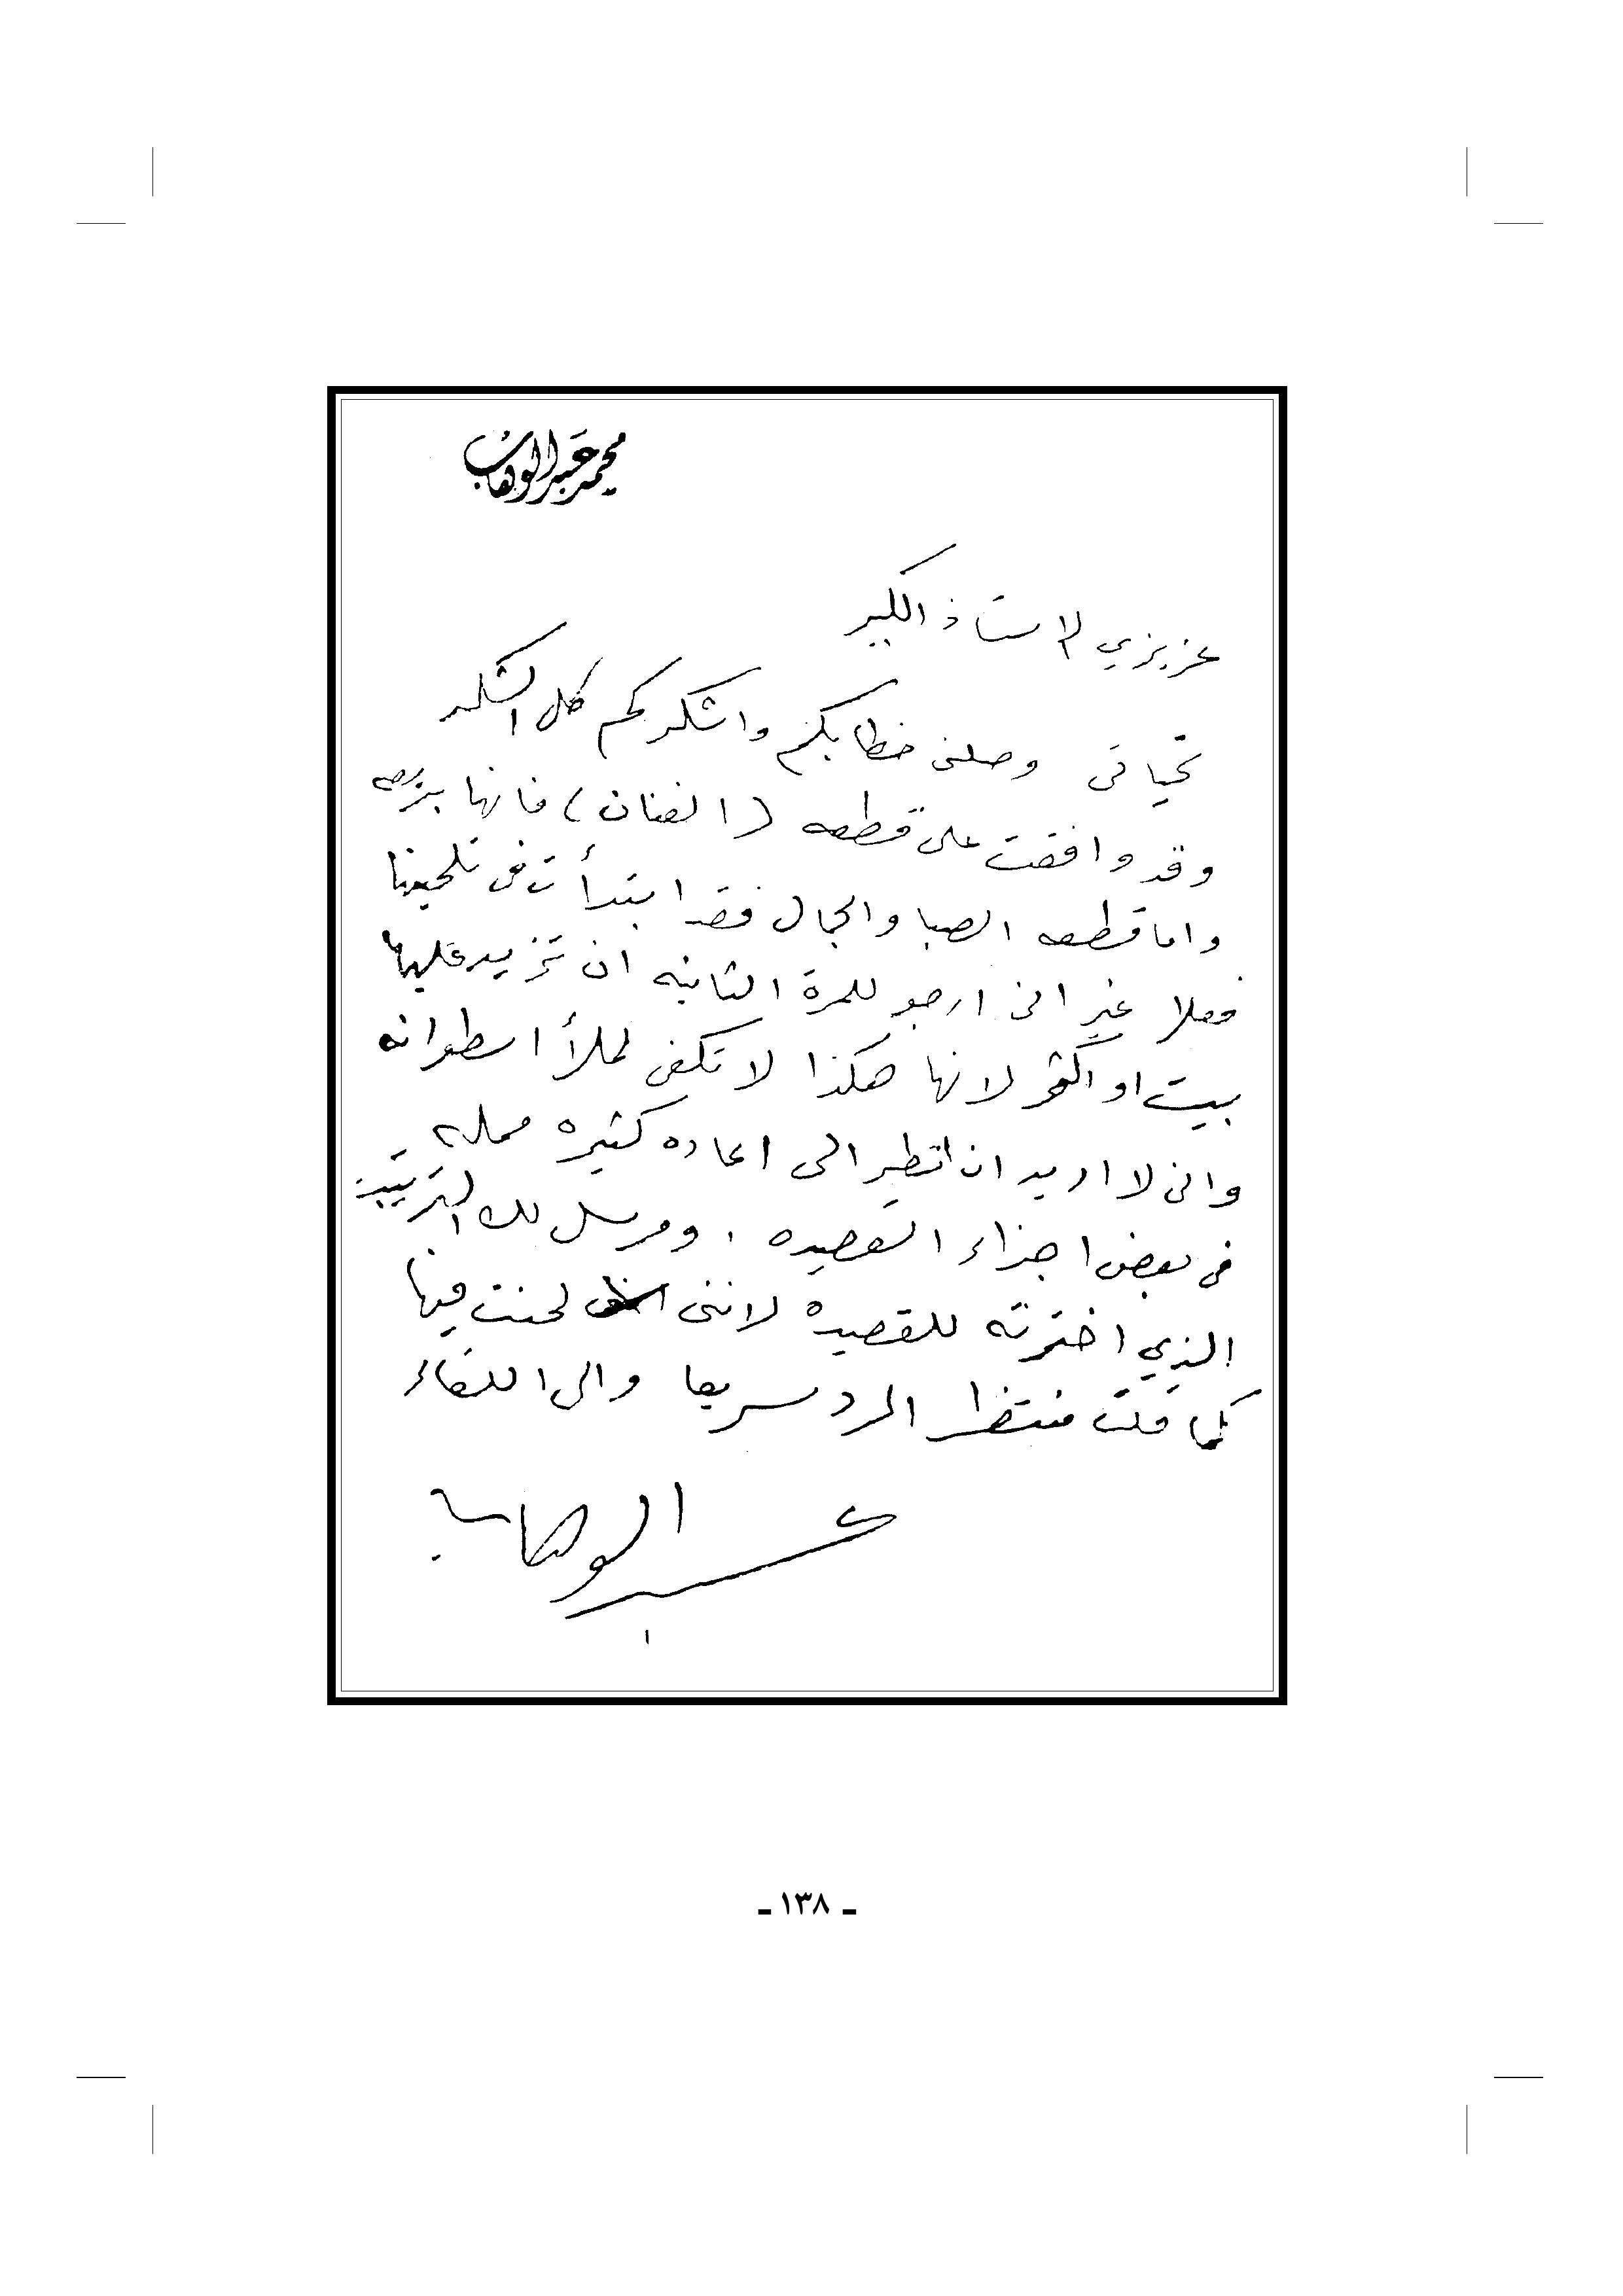 محمد عبد الوهاب
عزيزي الاستاذ الكبير
تحياتى وصلنى خطابكم واشكركم كل الشكر
وقد وافقت على قطعه (الفنان) فانها بديعه
واما قطعه الصبا والجمال فقد ابتدأت فى تلحينها
فعلا غير انى ارجو للمرة الثانيه ان تزيد عليها
بيت او اكثر لانها هكذا لا تكفى لملأ اسطوانه
وانى لا اريد ان اضطر الى اعاده كثيره ممله
فى بعض اجزاء القصيده . ومرسل لك الترتيب
الذي اخترته للقصيده لاننى لحنت فيها
كما قلت منتظرا الرد سريعا والى اللقاء
عبد الوهاب
ـ ١٣٨ ـ